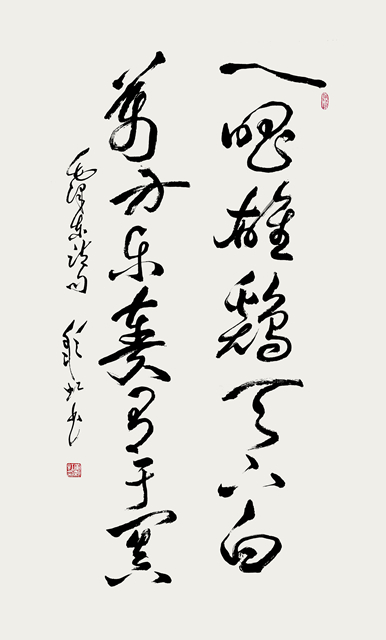 一唱雄鷄天下白
萬方乐奏有于闐
毛泽東诗句 书